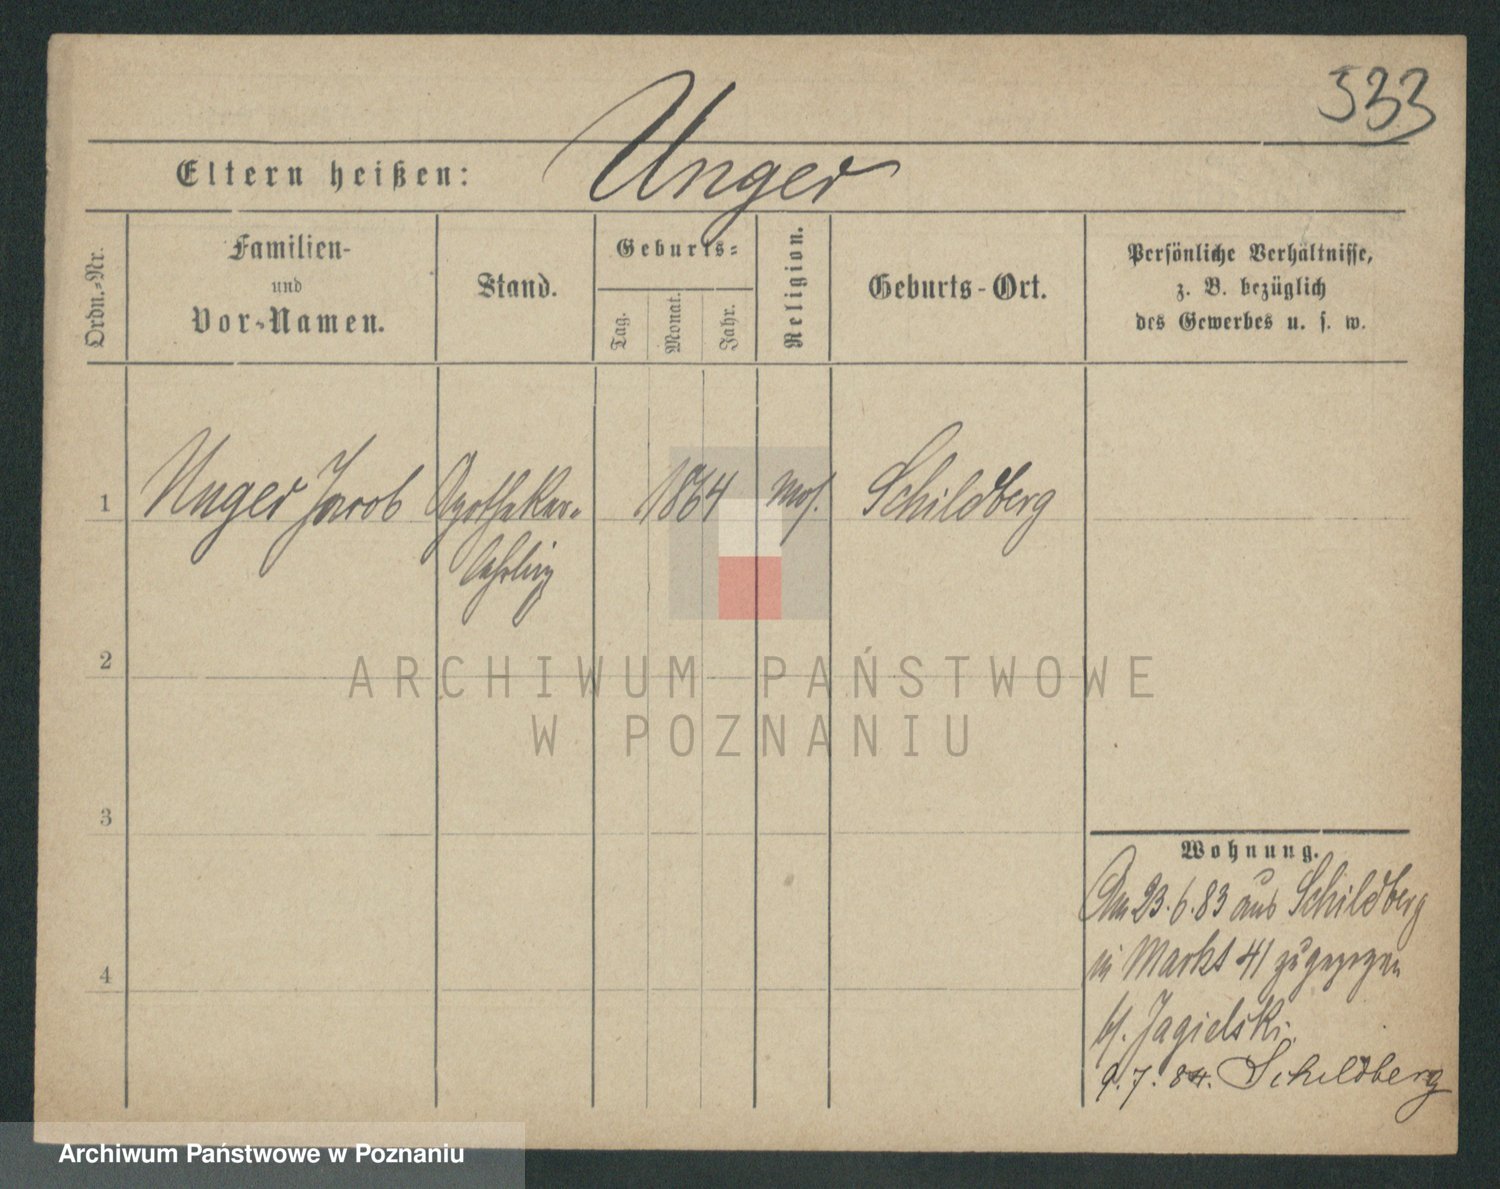 533
Eltern heißen: Unger
Ordn.-Nr.
Familien-
und
Vor-Namen.
Stand.
Geburts-
Tag.
Monat.
Jahr.
Religion.
Geburts-Ort.
Persönliche Verhältnisse,
z. B. bezüglich
des Gewerbes u. s. w.
1 Unger Jacob Apotheker- 1864 mos. Schildberg
Lehrling
2
3
4
Wohnung.
Am 23.6.83 aus Schildberg
in Markt 41 zugezogen
b/. Jagielski.
9.7.84. Schildberg
ARCHIWUM PAŃSTWOWE
W POZNANIU
Archiwum Państwowe w Poznaniu